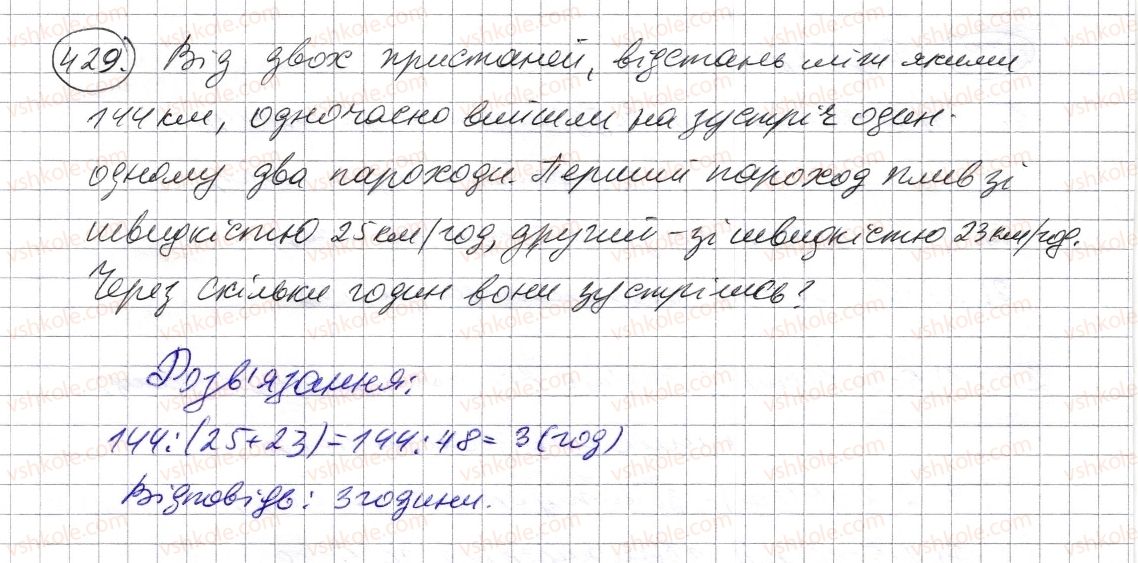 429. Від двох пристаней, відстань між якими
144 км, одночасно вийшли на зустріч один-
одному два пароходи. Перший пароход плив зі
швидкістю 25 км/год, другий - зі швидкістю 23 км/год.
Через скільки годин вони зустрілись?
Розв'язання:
144:(25+23)=144:48=3(год)
Відповідь: 3 години.